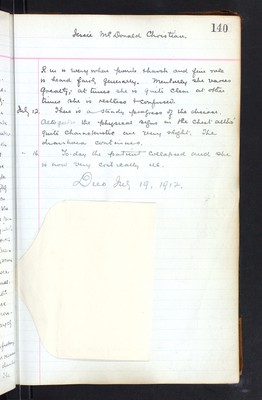 140
Jessie McDonald Christian.
R in is very
is heard fairly generally. Mentally she varies
greatly, at times she is quite clear at other
times she is restless & confused.
July 12. There is a steady progress of the disease.
the physical signs in the chest altho'
quite characteristic are very slight. The
diarrhoea continues.
- 16 To-day the patient collapsed and she
is now very critically ill.
Died July 19, 1912.